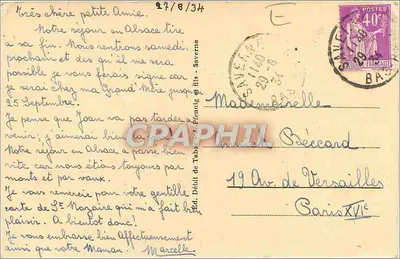 27/8/34
E
Très chère petite Amie.
Notre séjour en Alsace tire
a sa fin. Nous rentrons samedi
prochain et des qu'il me sera
possible je vous ferais signe car
je serai chez ma Grand'Mère jusqu'au
25 Septembre.
Je pense que Jean va pas tarder
venir; j'aimerai bien
Notre séjour en Alsace a passé bien
vite car nous étions toujours par
monts et par vaux.
Je vous remercie pour votre gentille
carte de St Nazaire qui m'a fait bien
plaisir. A bientôt donc!
Je vous embrasse bien Affectueusement
ainsi que votre Maman. Marcelle
Ed. Débit de Tabacs Pfrennig et fils - Saverne
SAVERNE
29-8
34
BAS-RHIN
40c
POSTES
SAVERNE
BAS-RHIN
Mademoiselle
Beccard
19 Av. de Versailles
Paris XVIe
CPAPHIL